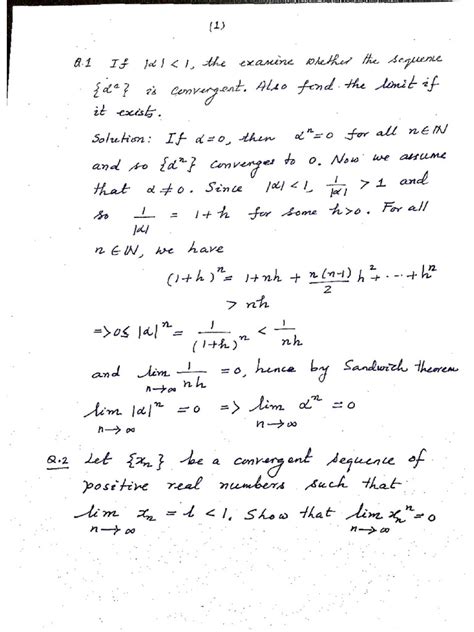 (1)
Q.1 If |α| < 1, the examine whether the sequence
{αⁿ} is convergent. Also find the limit if
it exists.
Solution: If α=0, then αⁿ=0 for all n∈ℕ
and so {αⁿ} converges to 0. Now we assume
that α≠0. Since |α|<1, 1/|α| > 1 and
so 1/|α| = 1+h for some h>0. For all
n∈ℕ, we have
(1+h)ⁿ = 1+nh + n(n-1)/2 h² + ... + hⁿ
> nh
=> 0≤|α|ⁿ = 1/(1+h)ⁿ < 1/nh
and lim n→∞ 1/nh = 0, hence by Sandwich theorem
lim n→∞ |α|ⁿ = 0 => lim n→∞ αⁿ = 0
Q.2 Let {xₙ} be a convergent sequence of
positive real numbers such that
lim n→∞ xₙ = l < 1. Show that lim n→∞ xₙⁿ = 0